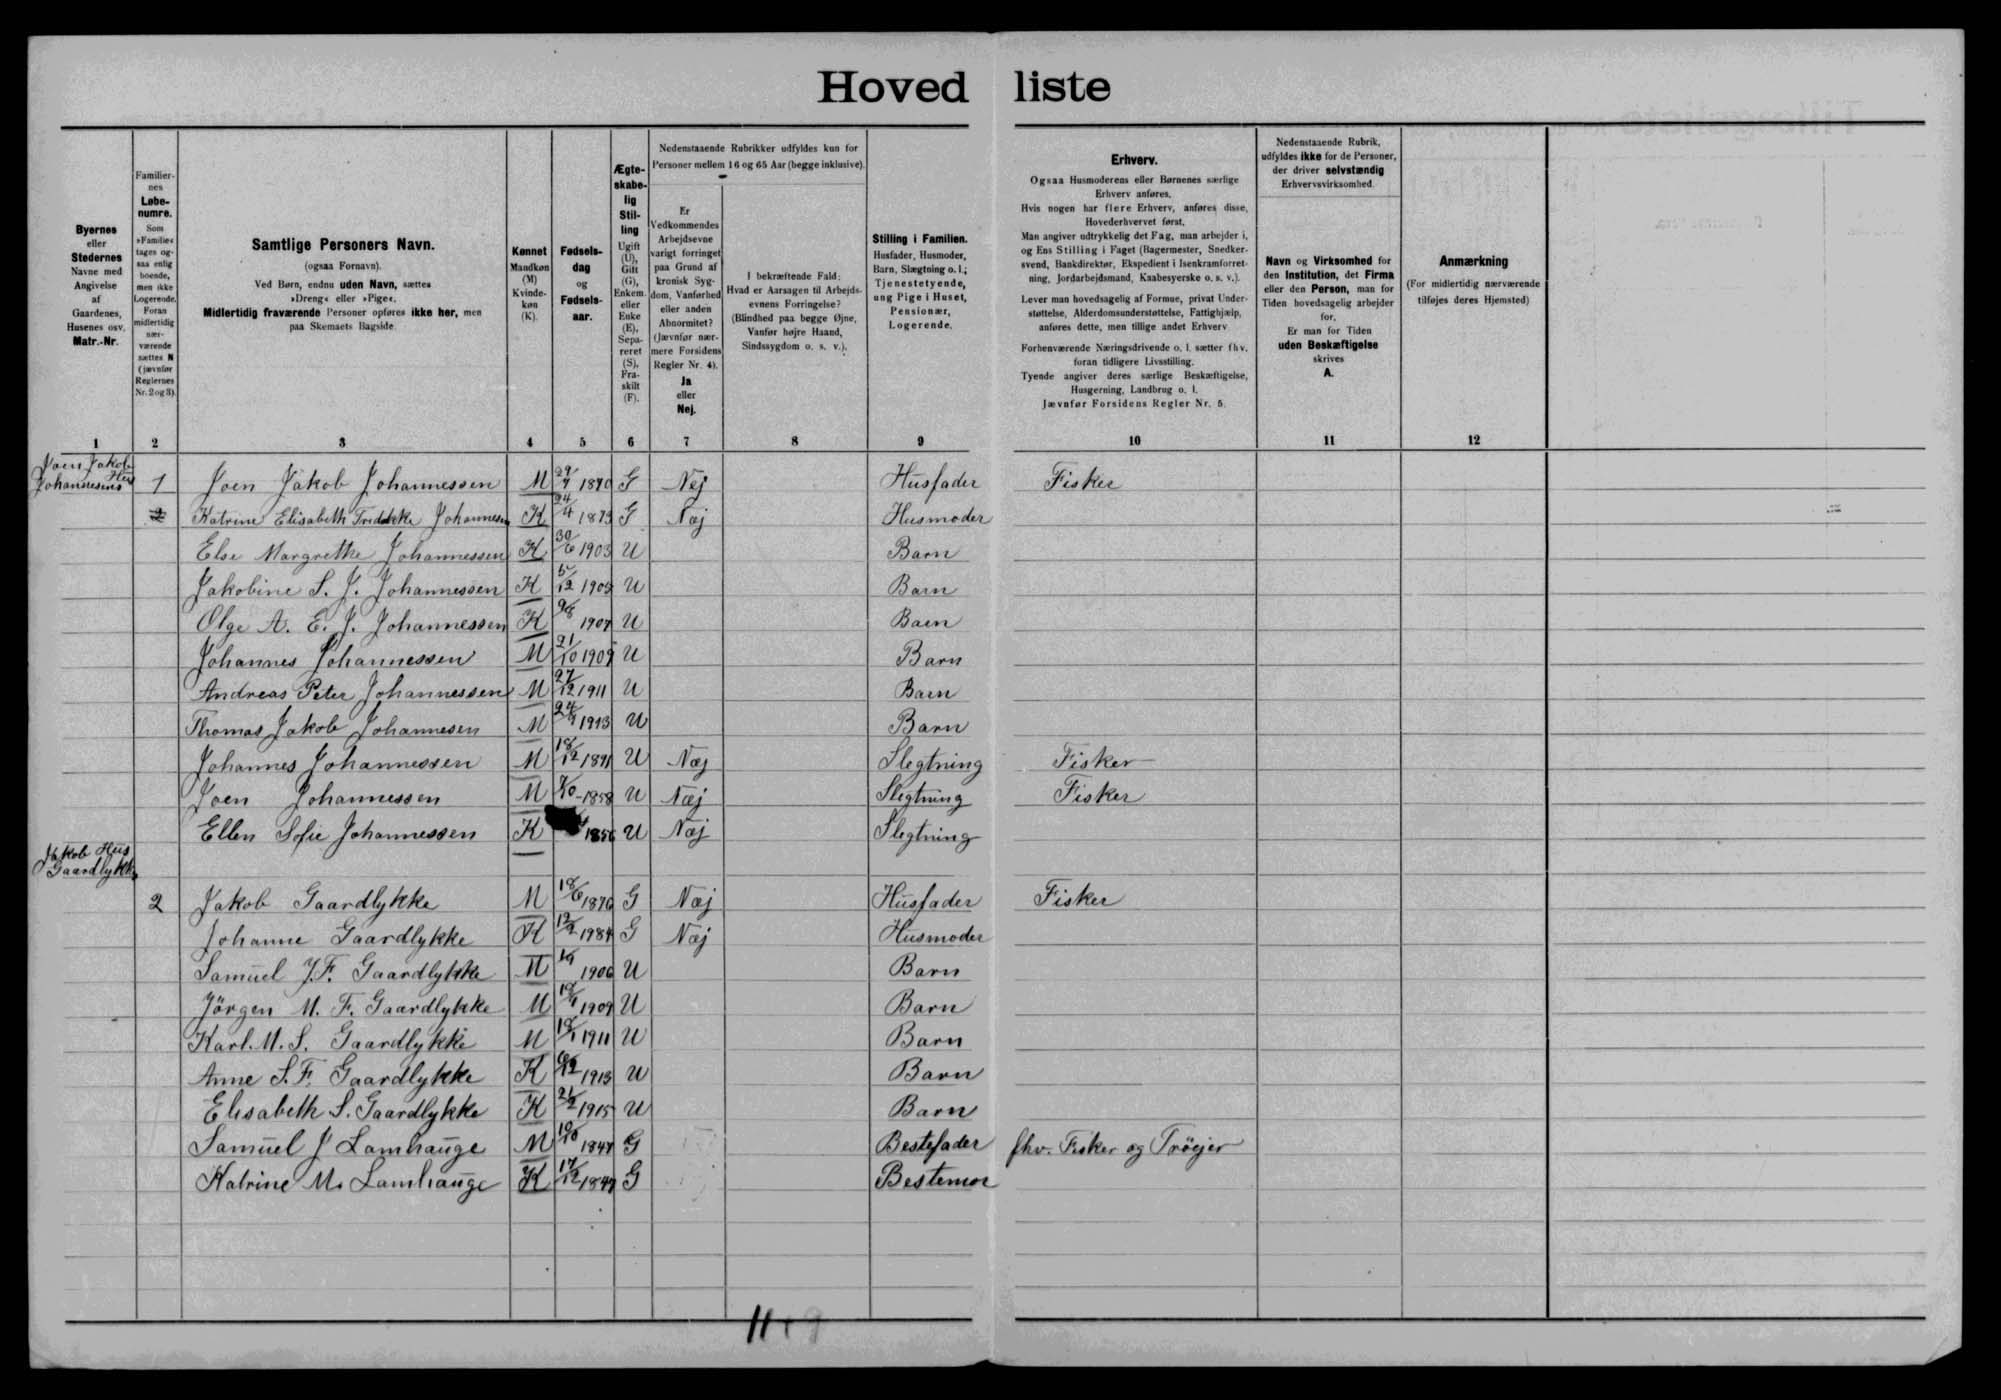 Hovedliste
Byernes eller Stedernes Navne med Angivelse af Gaardenes, Husenes osv. Matr.-Nr.
Familiernes Løbenumre. Som »Familie« tages ogsaa enlig boende, men ikke Logerende. Foran midlertidig nærværende sættes N (jævnfør Reglernes Nr. 2 og 3).
Samtlige Personers Navn. (ogsaa Fornavn). Ved Børn, endnu uden Navn, sættes »Dreng« eller »Pige«. Midlertidig fraværende Personer opføres ikke her, men paa Skemaets Bagside.
Kønnet Mandkøn (M) Kvindekøn (K).
Fødselsdag og Fødselsaar.
Ægteskabelig Stilling Ugift (U), Gift (G), Enkem. eller Enke (E), Separeret (S), Fraskilt (F).
Nedenstaaende Rubrikker udfyldes kun for Personer mellem 16 og 65 Aar (begge inklusive).
Er Vedkommendes Arbejdsevne varigt forringet paa Grund af kronisk Sygdom, Vanførhed eller anden Abnormitet? (Jævnfør nærmere Forsidens Regler Nr. 4). Ja eller Nej.
I bekræftende Fald: Hvad er Aarsagen til Arbejdsevnens Forringelse? (Blindhed paa begge Øjne, Vanfør højre Haand, Sindssygdom o. s. v.).
Stilling i Familien. Husfader, Husmoder, Barn, Slægtning o. l.; Tjenestetyende, ung Pige i Huset, Pensionær, Logerende.
Erhverv.
Ogsaa Husmoderens eller Børnenes særlige Erhverv anføres.
Hvis nogen har flere Erhverv, anføres disse, Hovederhvervet først.
Man angiver udtrykkelig det Fag, man arbejder i, og Ens Stilling i Faget (Bagermester, Snedkersvend, Bankdirektør, Ekspedient i Isenkramforretning, Jordarbejdsmand, Kaabesyerske o. s. v.).
Lever man hovedsagelig af Formue, privat Understøttelse, Alderdomsunderstøttelse, Fattighjælp, anføres dette, men tillige andet Erhverv
Forhenværende Næringsdrivende o. l. sætter fhv. foran tidligere Livsstilling.
Tyende angiver deres særlige Beskæftigelse, Husgerning, Landbrug o. l.
Jævnfør Forsidens Regler Nr. 5.
Nedenstaaende Rubrik, udfyldes ikke for de Personer, der driver selvstændig Erhvervsvirksomhed.
Navn og Virksomhed for den Institution, det Firma eller den Person, man for Tiden hovedsagelig arbejder for.
Er man for Tiden uden Beskæftigelse skrives A.
Anmærkning (For midlertidig nærværende tilføjes deres Hjemsted)
1 2 3 4 5 6 7 8 9 10 11 12
Joen Jakob Johannesens Hus
1 Joen Jakob Johannessen M 1870 G Nej Husfader Fisker
Katrine Elisabeth Johannesen K 24/4 1873 G Næj Husmoder
Else Margrethe Johannessen K 30/6 1903 U Barn
Jakobine S. J. Johannessen K 5/12 1905 U Barn
Olge A. E. J. Johannessen K 1907 U Barn
Johannes Johannessen M 21/10 1909 U Barn
Andreas Peter Johannessen M 27/12 1911 U Barn
Thomas Jakob Johannesen M 1913 U Barn
Johannes Johannessen M 18/12 1871 U Næj Slegtning Fisker
Joen Johannessen M 1858 U Næj Slegtning Fisker
Ellen Sofie Johannessen K 1856 U Næj Slegtning
Jakob Hus Gaardlykke
2 Jakob Gaardlykke M 18/6 1876 G Næj Husfader Fisker
Johanne Gaardlykke K 1984 G Næj Husmoder
Samuel J. F. Gaardlykke M 1906 U Barn
Jörgen M. F. Gaardlykke M 1909 U Barn
Karl. M. S. Gaardlykke M 18/1 1911 U Barn
Anne S. F. Gaardlykke K 1913 U Barn
Elisabeth S. Gaardlykke K 1915 U Barn
Samuel J Lamhauge M 10/10 1847 G Bestefader fhv. Fisker og Tröejer
Katrine M. Lamhauge K 17/12 1847 G Bestemor
11